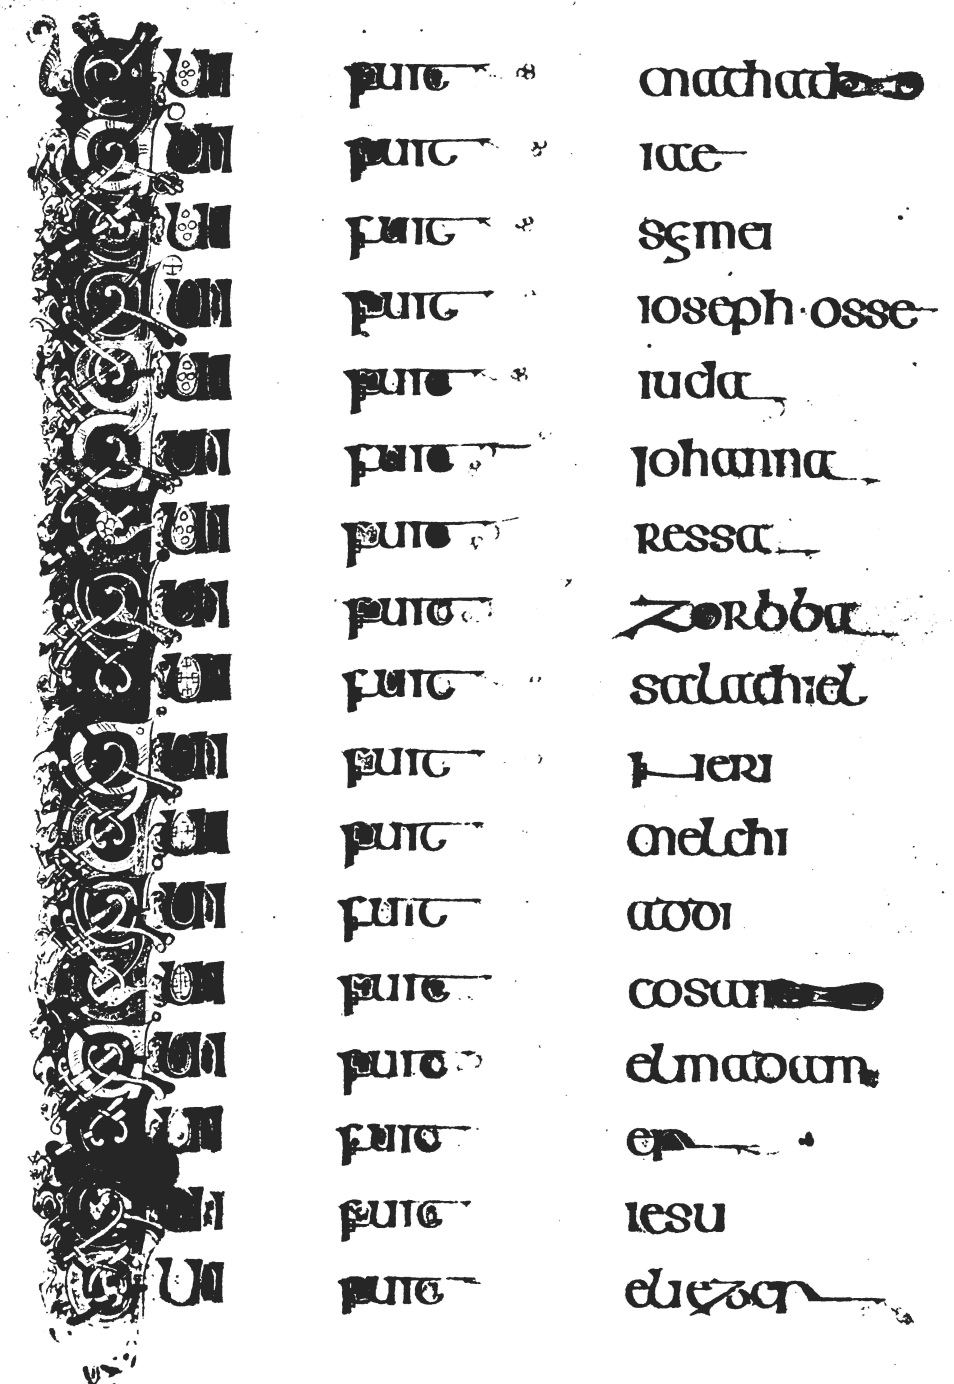 QUI fuit mathath
QUI fuit iae
QUI fuit semei
QUI fuit ioseph·osse
QUI fuit iuda
QUI fuit iohanna
QUI fuit ressa
QUI fuit zorbba
QUI fuit salathiel
QUI fuit neri
QUI fuit melchi
QUI fuit addi
QUI fuit cosam
QUI fuit elmadam
QUI fuit er
QUI fuit iesu
QUI fuit eliezer